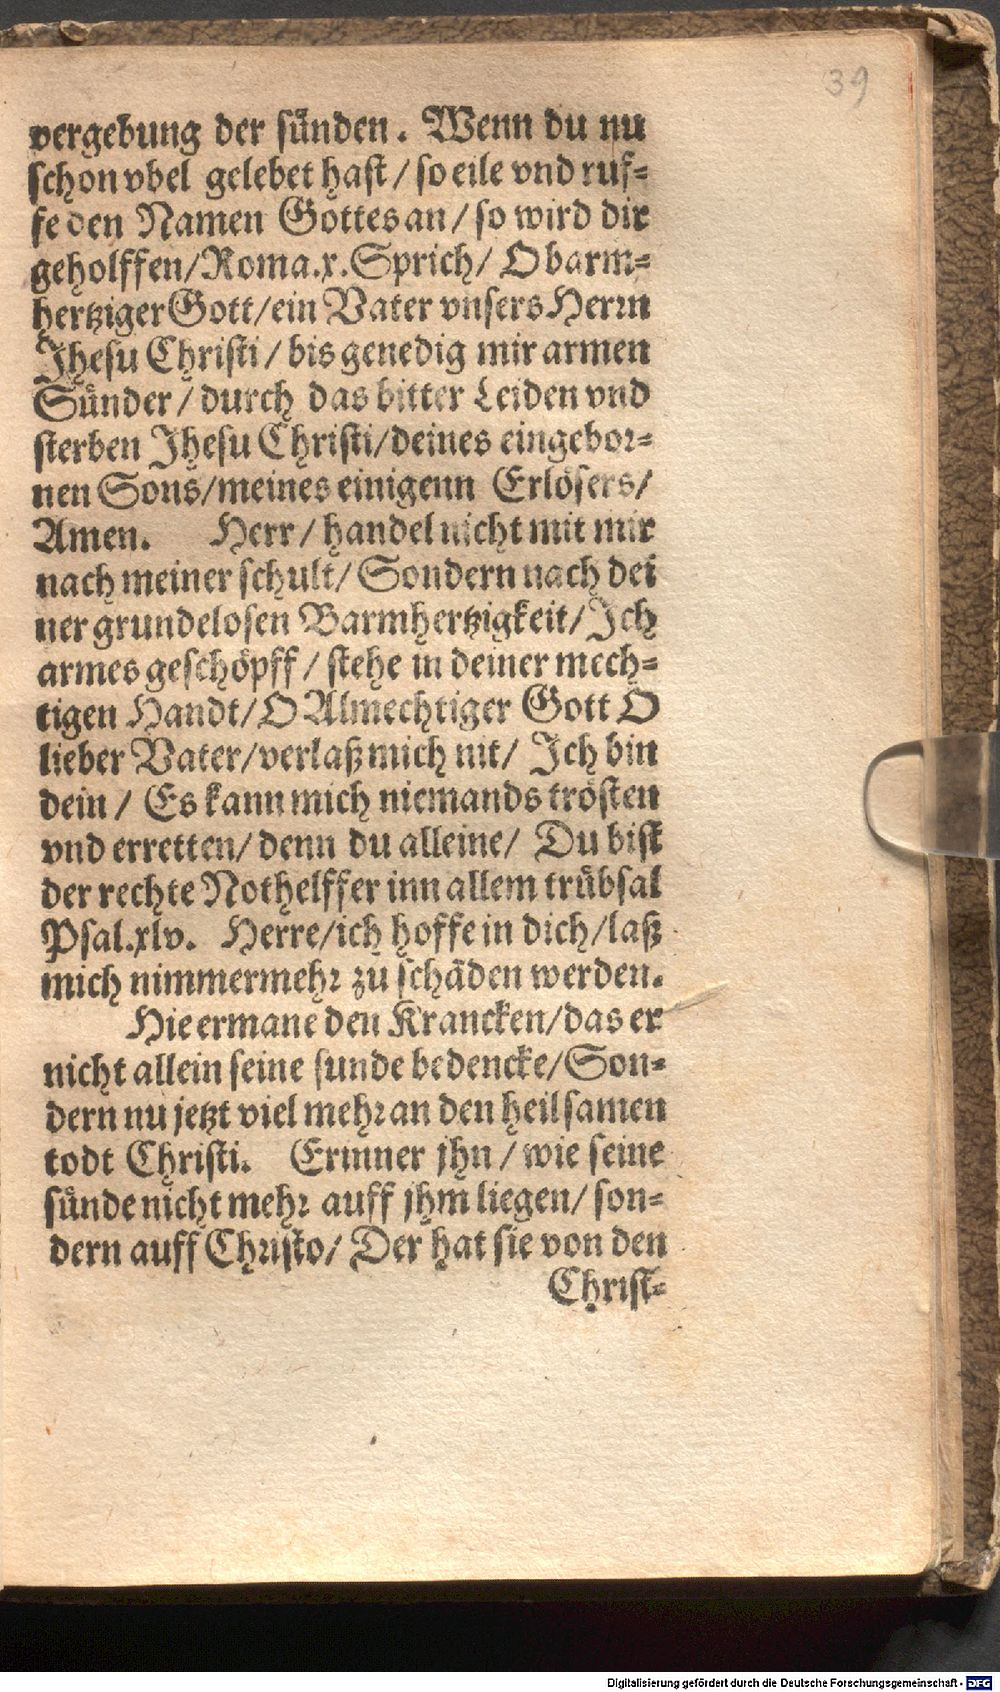 39
vergebung der sünden. Wenn du nu
schon vbel gelebet hast / so eile vnd ruf-
fe den Namen Gottes an / so wird dir
geholffen/Roma.x. Sprich/ O barm-
hertziger Gott/ein Vater vnsers Herrn
Jhesu Christi / bis genedig mir armen
Sünder / durch das bitter Leiden vnd
sterben Jhesu Christi/deines eingebor-
nen Sons/meines einigenn Erlösers/
Amen. Herr / handel nicht mit mir
nach meiner schult/ Sondern nach dei
ner grundelosen Barmhertzigkeit/Ich
armes geschöpff / stehe in deiner mech-
tigen Handt/O Almechtiger Gott O
lieber Vater/verlaß mich nit/ Ich bin
dein / Es kann mich niemands trösten
vnd erretten/ denn du alleine/ Du bist
der rechte Nothelffer inn allem trübsal
Psal.xlv. Herre/ich hoffe in dich/laß
mich nimmermehr zu schāden werden.
Hie ermane den Krancken/das er
nicht allein seine sunde bedencke/Son-
dern nu jetzt viel mehr an den heilsamen
todt Christi. Erinner jhn / wie seine
sünde nicht mehr auff jhm liegen/ son-
dern auff Christo/ Der hat sie von den
Christ-
Digitalisierung gefördert durch die Deutsche Forschungsgemeinschaft - DFG